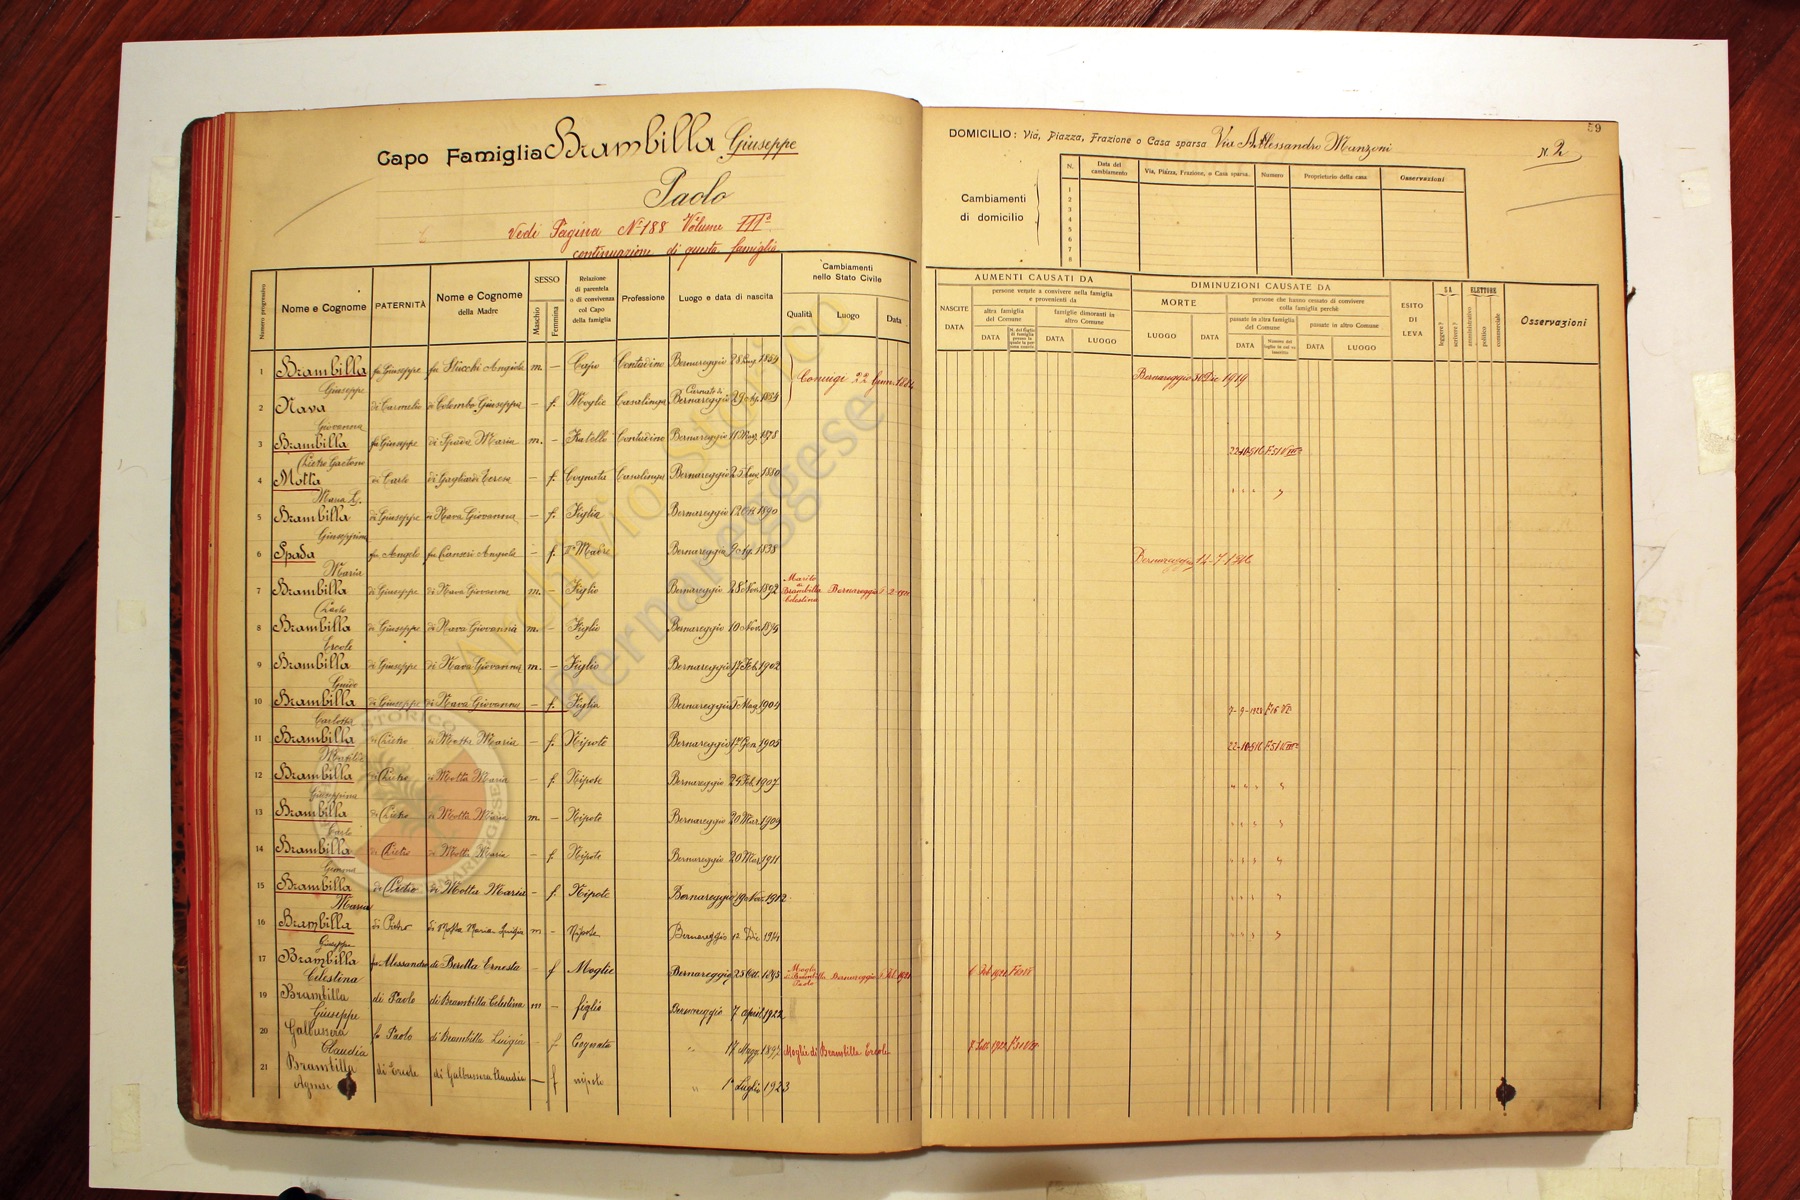 Capo Famiglia Brambilla Giuseppe
Paolo
Vedi Pagina N. 188 Volume III°
continuazione di questa famiglia
59
DOMICILIO: Via, Piazza, Frazione o Casa sparsa Via Alessandro Manzoni N. 2
Cambiamenti di domicilio
N. Data del cambiamento Via, Piazza, Frazione, o Casa sparsa. Numero Proprietario della casa Osservazioni
1
2
3
4
5
6
7
8
Numero progressivo Nome e Cognome PATERNITÀ Nome e Cognome della Madre SESSO Maschio Femmina Relazione di parentela o di convivenza col Capo della famiglia Professione Luogo e data di nascita Cambiamenti nello Stato Civile Qualità Luogo Data
AUMENTI CAUSATI DA
NASCITE DATA
persone venute a convivere nella famiglia e provenienti da
altra famiglia del Comune DATA
famiglie dimoranti in altro Comune DATA LUOGO
DIMINUZIONI CAUSATE DA
MORTE LUOGO DATA
persone che hanno cessato di convivere nella famiglia perchè
passate in altra famiglia del Comune DATA
passate in altro Comune DATA LUOGO
ESITO DI LEVA
SA leggere? scrivere?
ELETTORE amministrativo politico commerciale
Osservazioni
1 Brambilla Giuseppe fu Giuseppe fu Stucchi Angiola m. – Capo Contadino Bernareggio 28 1854 Coniugi 22 Genn. 1884 Bernareggio 30 Dic 1919
2 Nava Giovanna di Carmelio di Colombo Giuseppa – f. Moglie Casalinga Carnate Bernareggio 29
3 Brambilla Pietro Gaetano fu Giuseppe di Spada Maria m. – Fratello Contadino Bernareggio 11 1878 22-10-916
4 Motta Maria di Carlo di Gagliardi Teresa – f. Cognata Casalinga Bernareggio 25 1880
5 Brambilla Giuseppina di Giuseppe di Nava Giovanna – f. Figlia Bernareggio 1890
6 Spada Maria fu Angelo fu – f. Madre Bernareggio 9 1838 Bernareggio 14-7-1916
7 Brambilla Paolo di Giuseppe di Nava Giovanna m. – Figlio Bernareggio 28 Nov. 1892 Marito di Brambilla Celestina Bernareggio
8 Brambilla Ercole di Giuseppe di Nava Giovanna m. – Figlio Bernareggio 10 Nov.
9 Brambilla Guido di Giuseppe di Nava Giovanna m. – Figlio Bernareggio 17 Feb. 1902
10 Brambilla Carlotta di Giuseppe di Nava Giovanna – f. Figlia Bernareggio 5 Mag. 1904 7-9-1928 F 16 VI°
11 Brambilla Matilde di Pietro di Motta Maria – f. Nipote Bernareggio 17 Gen. 1905 22-10-916
12 Brambilla Giuseppina di Pietro di Motta Maria – f. Nipote Bernareggio 24 Feb. 1907
13 Brambilla Carlo di Pietro di Motta Maria m. – Nipote Bernareggio 20 Mar. 1909
14 Brambilla di Pietro di Motta Maria – f. Nipote Bernareggio 20 Mar. 1911
15 Brambilla Maria di Pietro di Motta Maria – f. Nipote Bernareggio 19 Nov. 1912
16 Brambilla Giuseppe di Pietro di Motta Maria Luigia m – Nipote Bernareggio 12 Dic 1914
17 Brambilla Celestina fu Alessandro di Beretta Ernesta – f Moglie Bernareggio 25 Ott. 1895 Moglie di Brambilla Paolo Bernareggio
19 Brambilla Giuseppe di Paolo di Brambilla Celestina m – figlio Bernareggio 7 aprile 1922
20 Galbussera Claudia fu Paolo di Brambilla Luigia – f Cognata " 17 Magg. 1897 Moglie di Brambilla Ercole
21 Brambilla Agnese di Ercole di Galbussera Claudia – f nipote " 1° Luglio 1923
Archivio Storico
Bernareggese